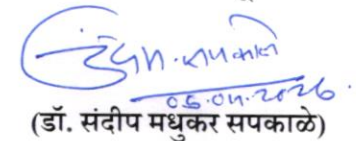 05.04.2026
(डॉ. संदीप मधुकर सपकाळे)